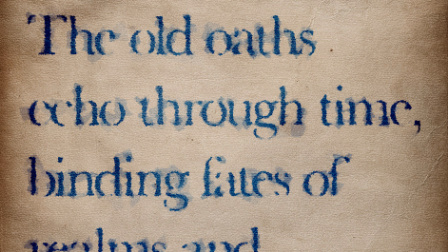 The old oaths
echo through time,
binding fates of
realms and